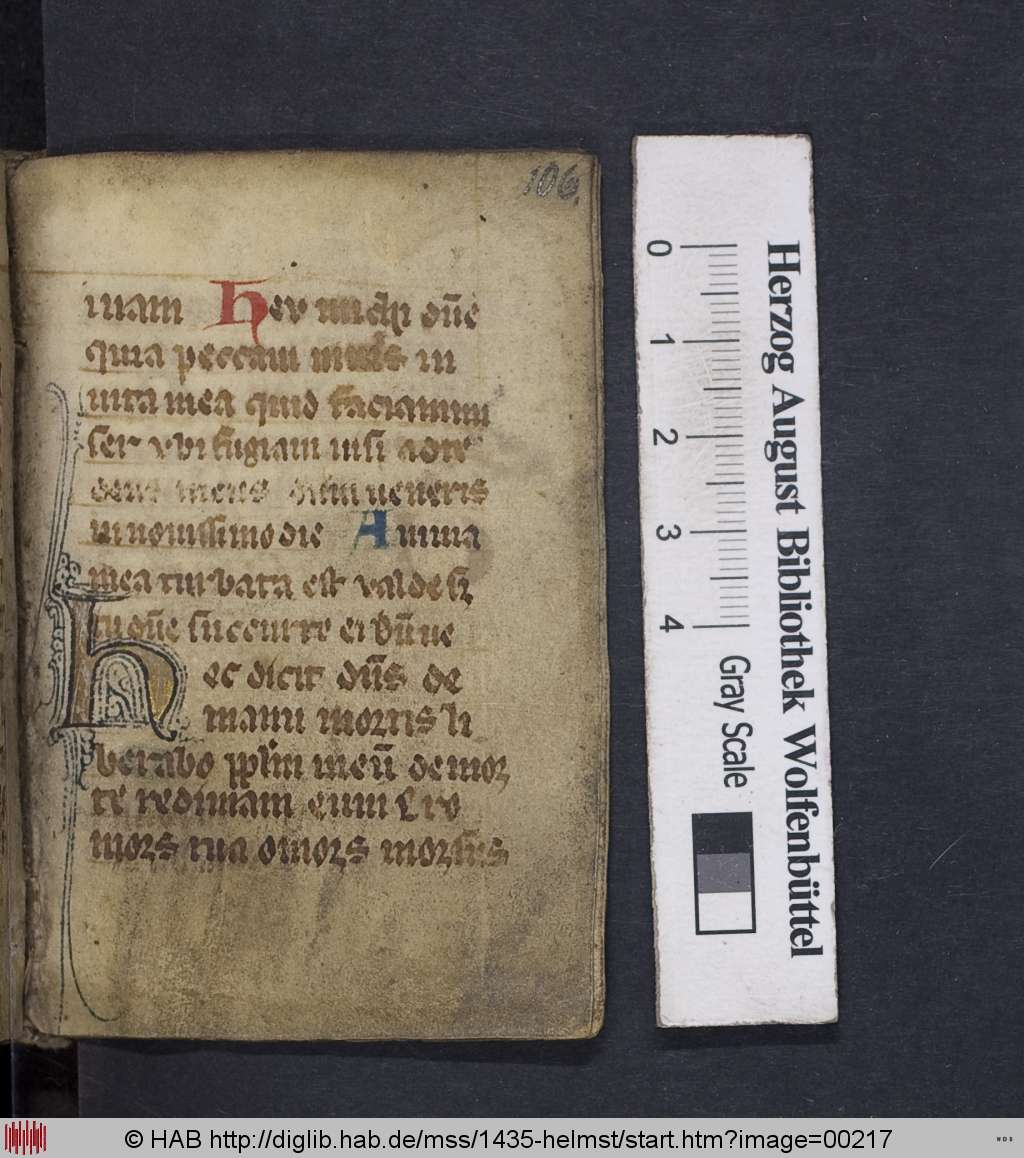 106.
mam Heu michi dn̄e
quia peccaui nimis in
uita mea quid faciam mi
ser vbi fugiam nisi ad te
deus meus dum ueneris
in nouissimo die Anima
mea turbata est valde sꝫ
tu dn̄e succurre ei Dn̄i ue
Hec dicit dn̄s de
manu mortis li
berabo pplm meū de mor
te redimam eum Ero
mors tua o mors morsus
Herzog August Bibliothek Wolfenbüttel
0 1 2 3 4
Gray Scale
© HAB http://diglib.hab.de/mss/1435-helmst/start.htm?image=00217